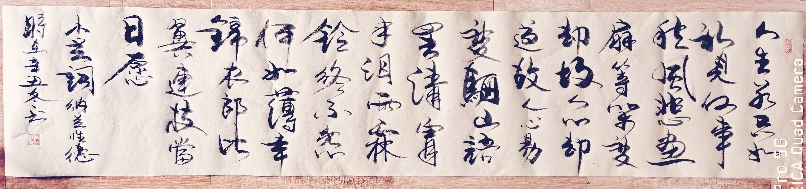 人生若只如
初見何事
秋風悲画
扇等闲变
却故人心却
道故人心易
變驪山語
罢清宵
半泪雨霖
铃終不怨
何如薄幸
錦衣郎比
翼連枝當
日愿
木兰詞 纳兰性德
時在辛丑冬
Pro 5G
ICA Quad Camera